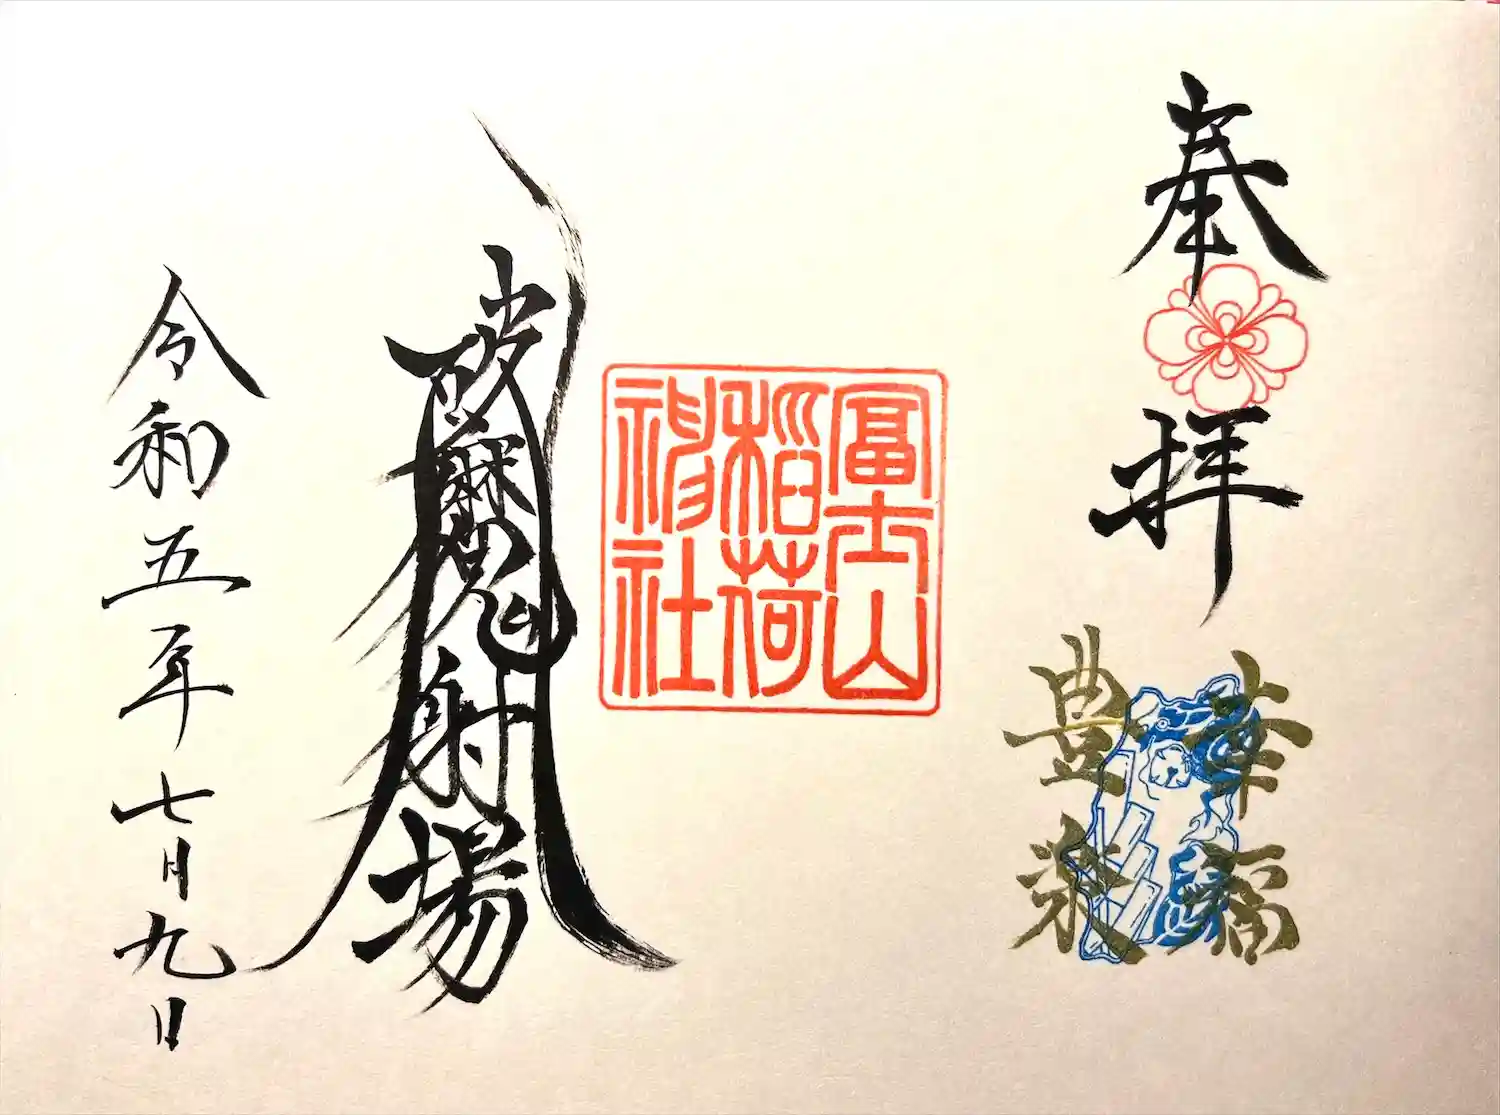 奉拝
幸福
豊楽
冨士山
稲荷
神社
破魔射場
令和五年七月九日